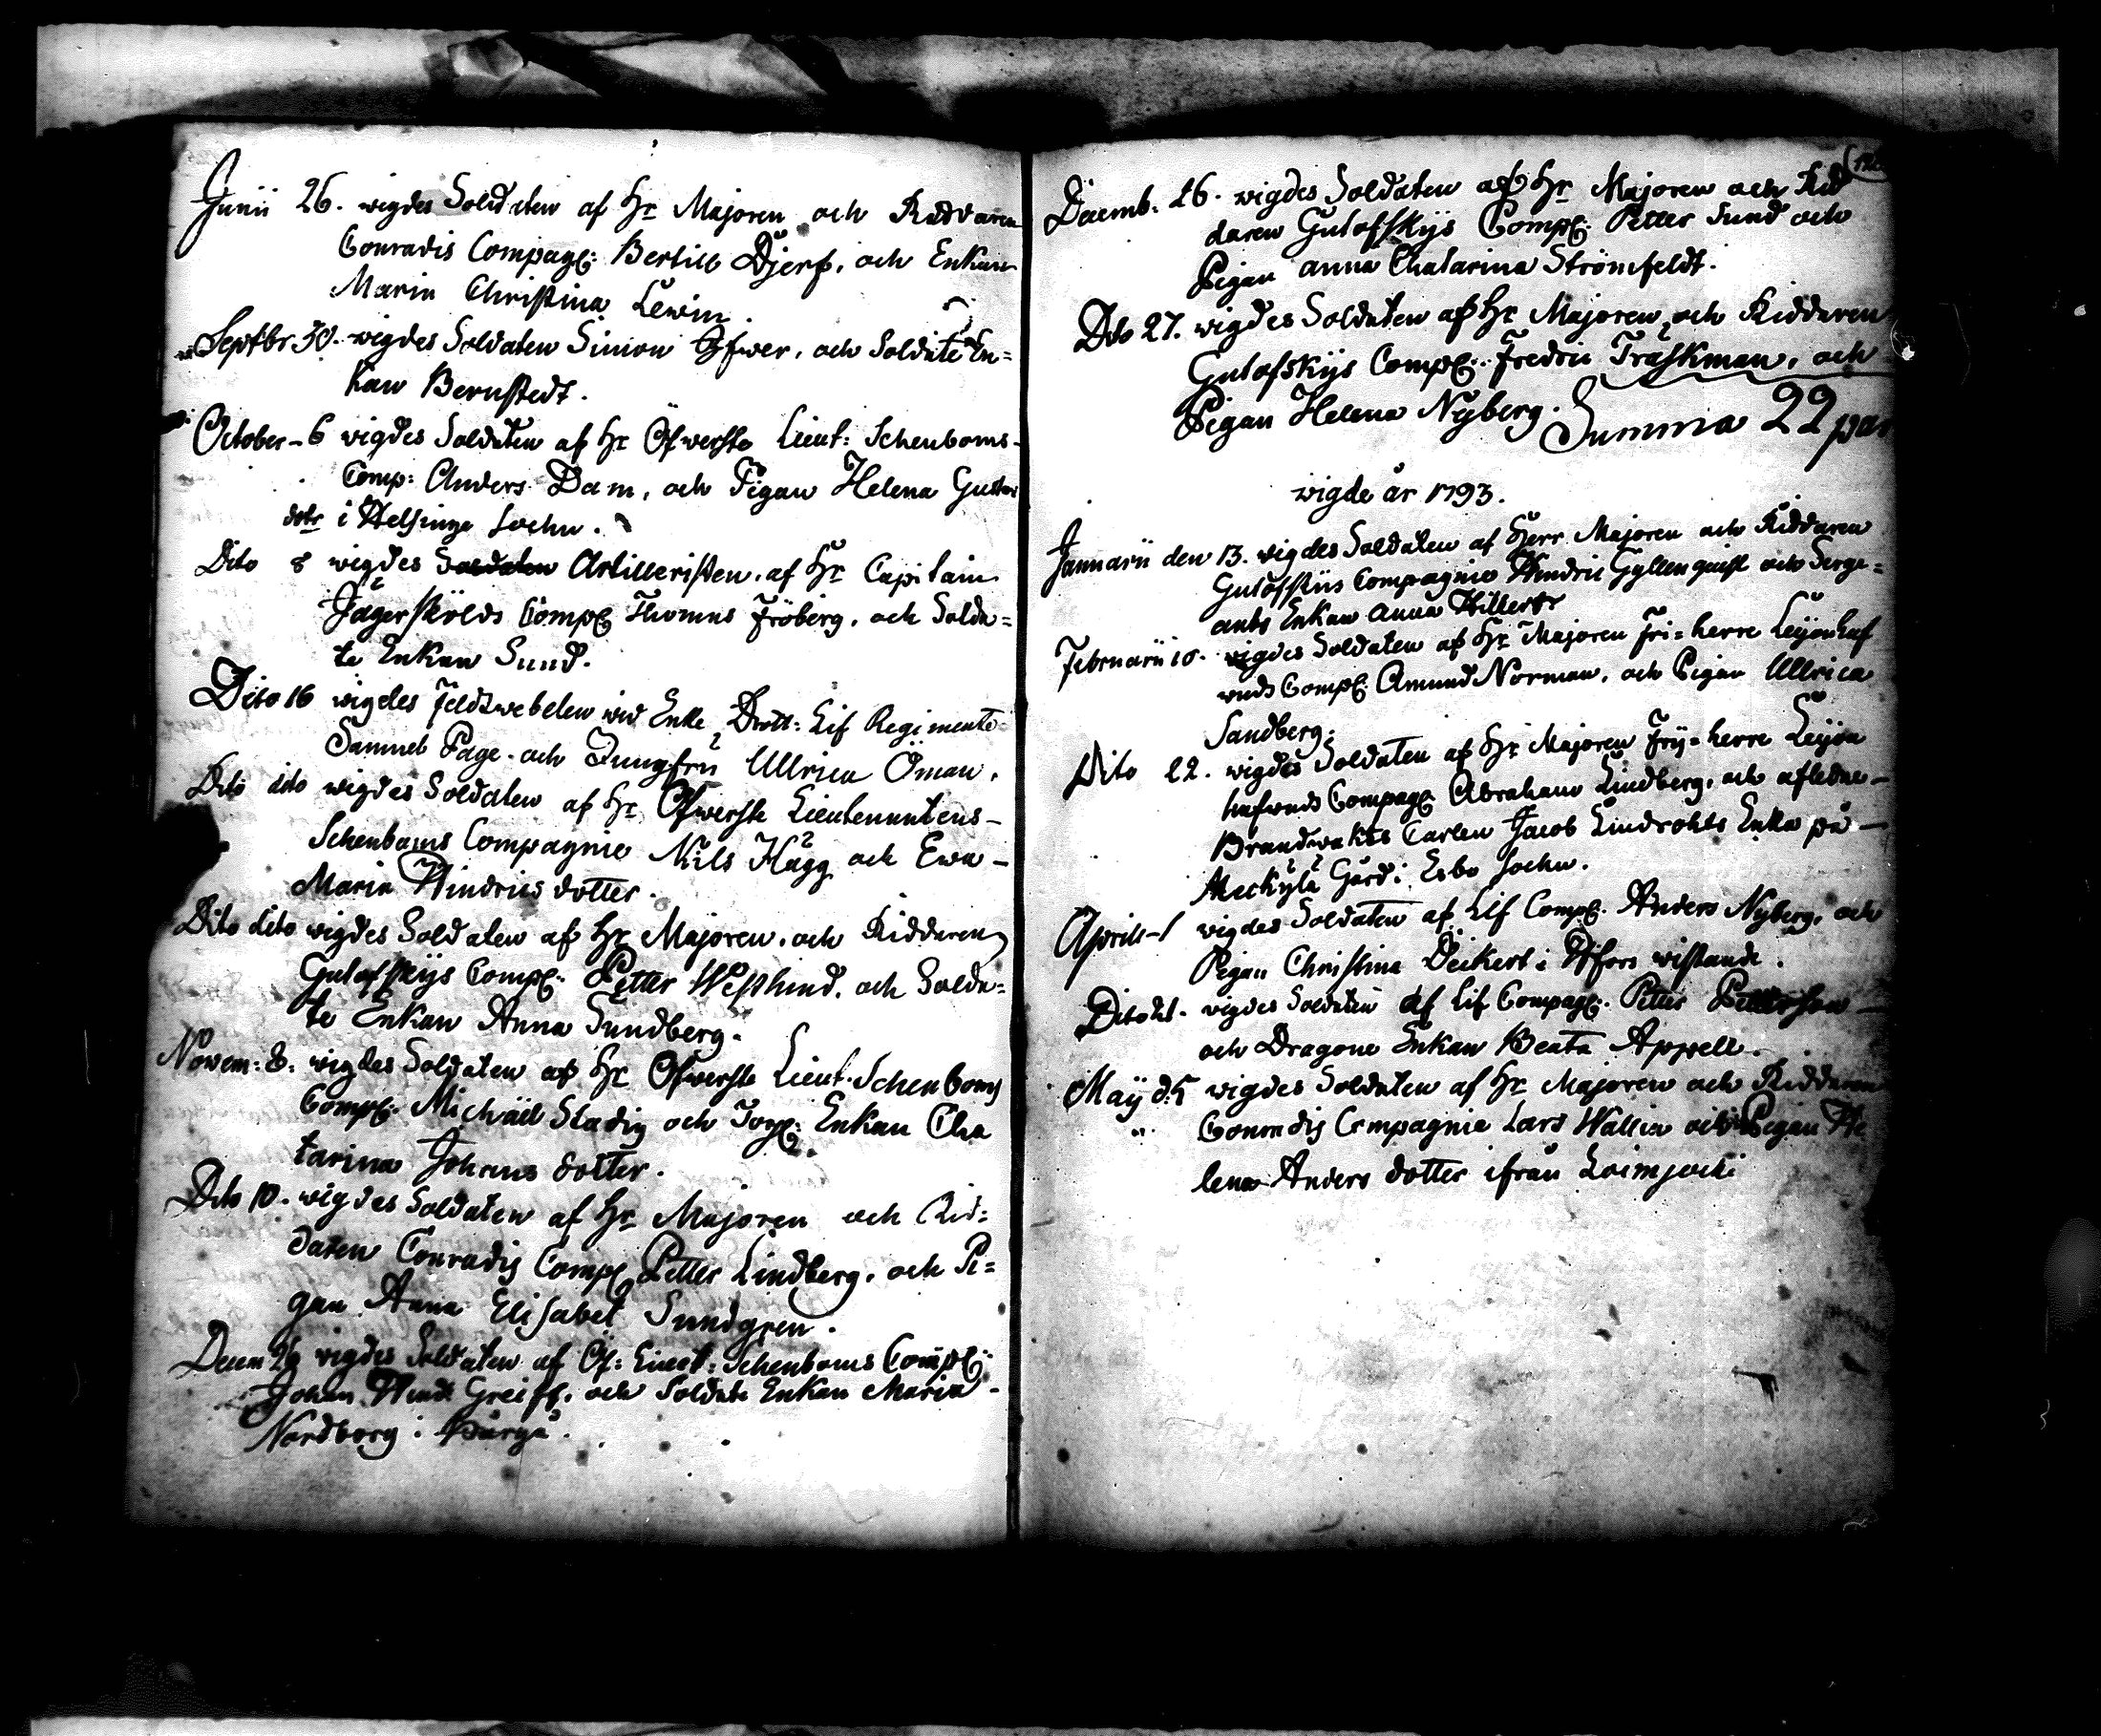 Junii 26. wigdes Soldaten af Hr Majoren och Riddaren
Conradis Compag: Bertill Djerf, och Enkan
Maria Christina Lewin.
Septbr 30. wigdes Soldaten Simon Öfwer, och Soldate En=
kan Bernstedt.
October - 6 wigdes Soldaten af Hr Öfwerste Lieut: Schenboms
Comp: Anders Dam, och Pigan Helena Gustavs
dotr i Helsinge Sochn.
Dito 8 wigdes Soldaten Artilleristen af Hr Capitain
Jägerskölds Comp: Thomas Fröberg, och Solda=
te Enkan Sund.
Dito 16 wigdes Feldtwebelen wid Enke Drott: Lif Regimente
Samuel Page. och Jungfru Ullrica Öman.
Dito dito wigdes Soldaten af Hr Öfwerste Lieutenantens
Schenboms Compagnie Nils Hägg och Ewa
Maria Hindrics dotter.
Dito dito wigdes Soldaten af Hr Majoren och Riddaren
Gutofskijs Comp: Petter Westlund, och Solda=
te Enkan Anna Sundberg.
Novem: 8. wigdes Soldaten af Hr Öfwerste Lieut. Schenboms
Comp: Michäel Stadig och Enkan Cha
tarina Johans dotter.
Dito 10. wigdes Soldaten af Hr Majoren och Rid=
daren Conradis Comp: Petter Lindberg. och Pi=
gan Anna Elisabet Sundgren.
Decem 26 wigdes Soldaten af Öf: Lieut: Schenboms Comp:
Johan Hind: Greiff. och Soldate Enkan Maria
Nordborg i Bårgå.
Däcemb: 26. wigdes Soldaten af Hr Majoren och Rid
daren Gutofskijs Comp: Petter Sund och
Pigan Anna Chatarina Strömfeldt.
Dito 27. wigdes Soldaten af Hr Majoren och Riddaren
Gutofskijs Comp: Fredric Träskman, och
Pigan Helena Nyberg. Summa 22 par
wigde år 1793.
Januarii den 13. wigdes Soldaten af Herr Majoren och Riddaren
Gutofskijs Compagnie Hindric Gyllenquist och Serge=
ants Enkan Anna Hillert
Februarii 10. wigdes Soldaten af Hr Majoren Fri=herre Leijonhuf
wuds Comp: Amund Norman, och Pigan Ullrica
Sandberg.
Dito 22. wigdes Soldaten af Hr Majoren Frij=herre Leijon
hufwuds Compag: Abraham Lindberg, och afledne
Brandwakts Carlen Jacob Lindrohts Enka på
Mackylä Gård i Esbo Sochn.
Aprill - 1 wigdes Soldaten af Lif Comp: Anders Nyberg, och
Pigan Christina Deikert i Hfors wistande.
Dito wigdes Soldaten af Lif Compag: Petter Petterson
och Dragone Enkan Beata Appell.
Maij d. 5 wigdes Soldaten af Hr Majoren och Riddaren
Conradis Compagnie Lars Wallin och Pigan He
lena Anders dotter ifrån Loimjocki